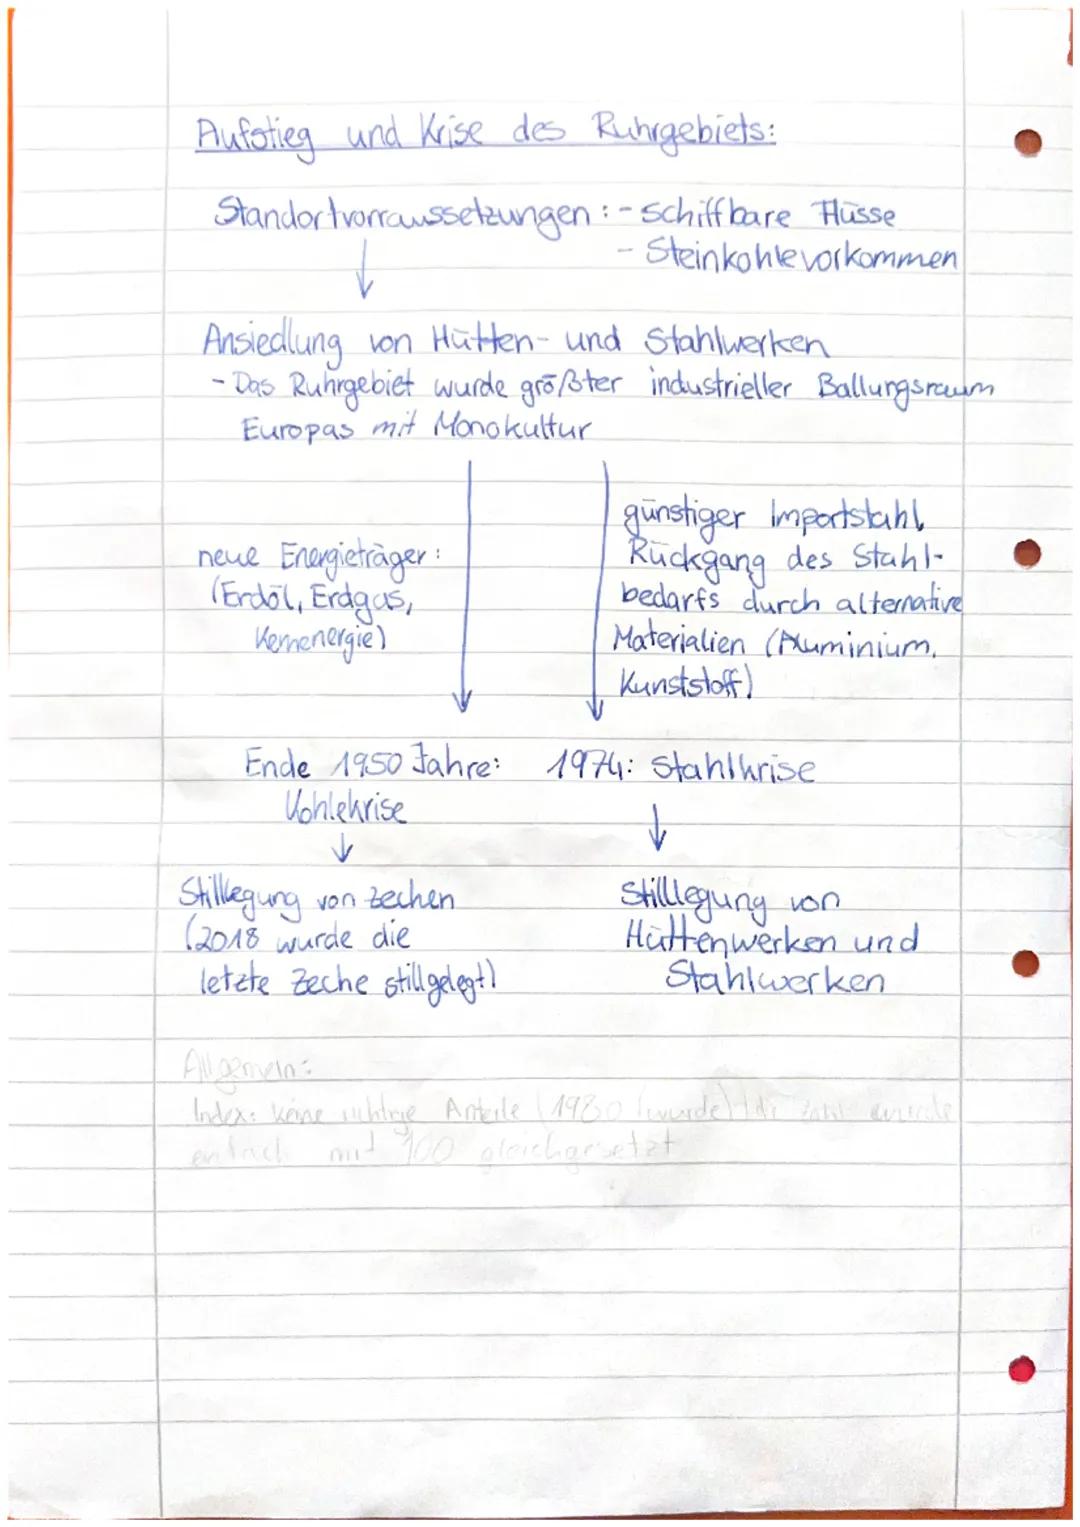 Aufstieg und Krise des Ruhrgebiets:
Standortvorraussetzungen: - schiffbare Flüsse
- Steinkohlevorkommen
↓
Ansiedlung von Hütten- und Stahlwerken
- Das Ruhrgebiet wurde größter industrieller Ballungsraum
Europas mit Monokultur
neue Energieträger:
(Erdöl, Erdgas,
Kernenergie)
günstiger Importstahl,
Rückgang des Stahl-
bedarfs durch alternative
Materialien (Aluminium,
Kunststoff)
Ende 1950 Jahre:
Kohlekrise
↓
Stilllegung von Zechen
(2018 wurde die
letzte Zeche stillgelegt)
1974: Stahlkrise
↓
Stilllegung von
Hüttenwerken und
Stahlwerken
Allgemein:
Index: keine Anteile (1980 (wurde) die Zahl wurde
einfach mit 100 gleichgesetzt